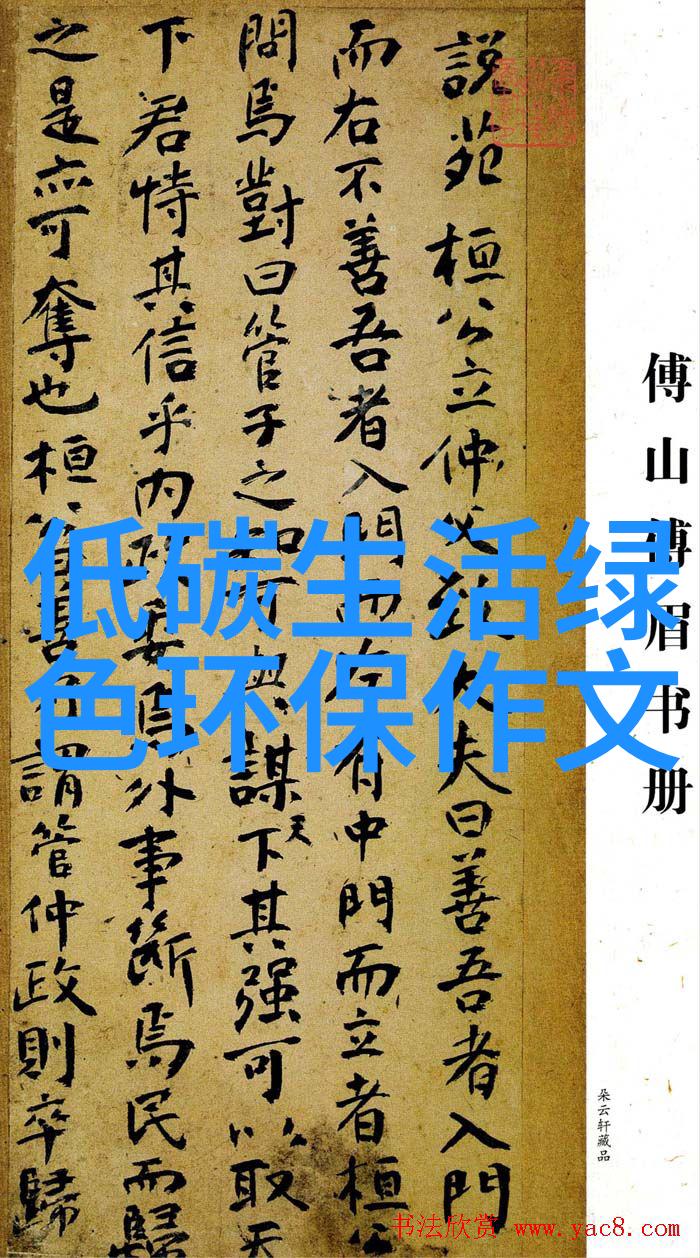 傅山傅眉书册
朵云轩藏品
説苑 桓公立仲父致大夫曰善吾者入門
而右不善吾者入門而左有中門而立者桓公
問焉對曰管子之知可與謀天下其强可以取天
下君恃其信乎内政委焉外事斷焉民而歸
之是亦可奪也桓公曰善乃謂管仲政則卒歸
低碳生活绿
色环保作文
书法欣赏 www.yac8.com